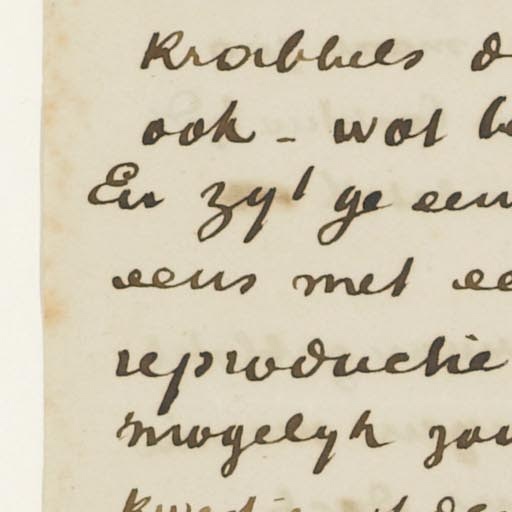 Krabbels d
ook - wat be
En zyt ge een
eens met ee
reproductie
mogelyk zou